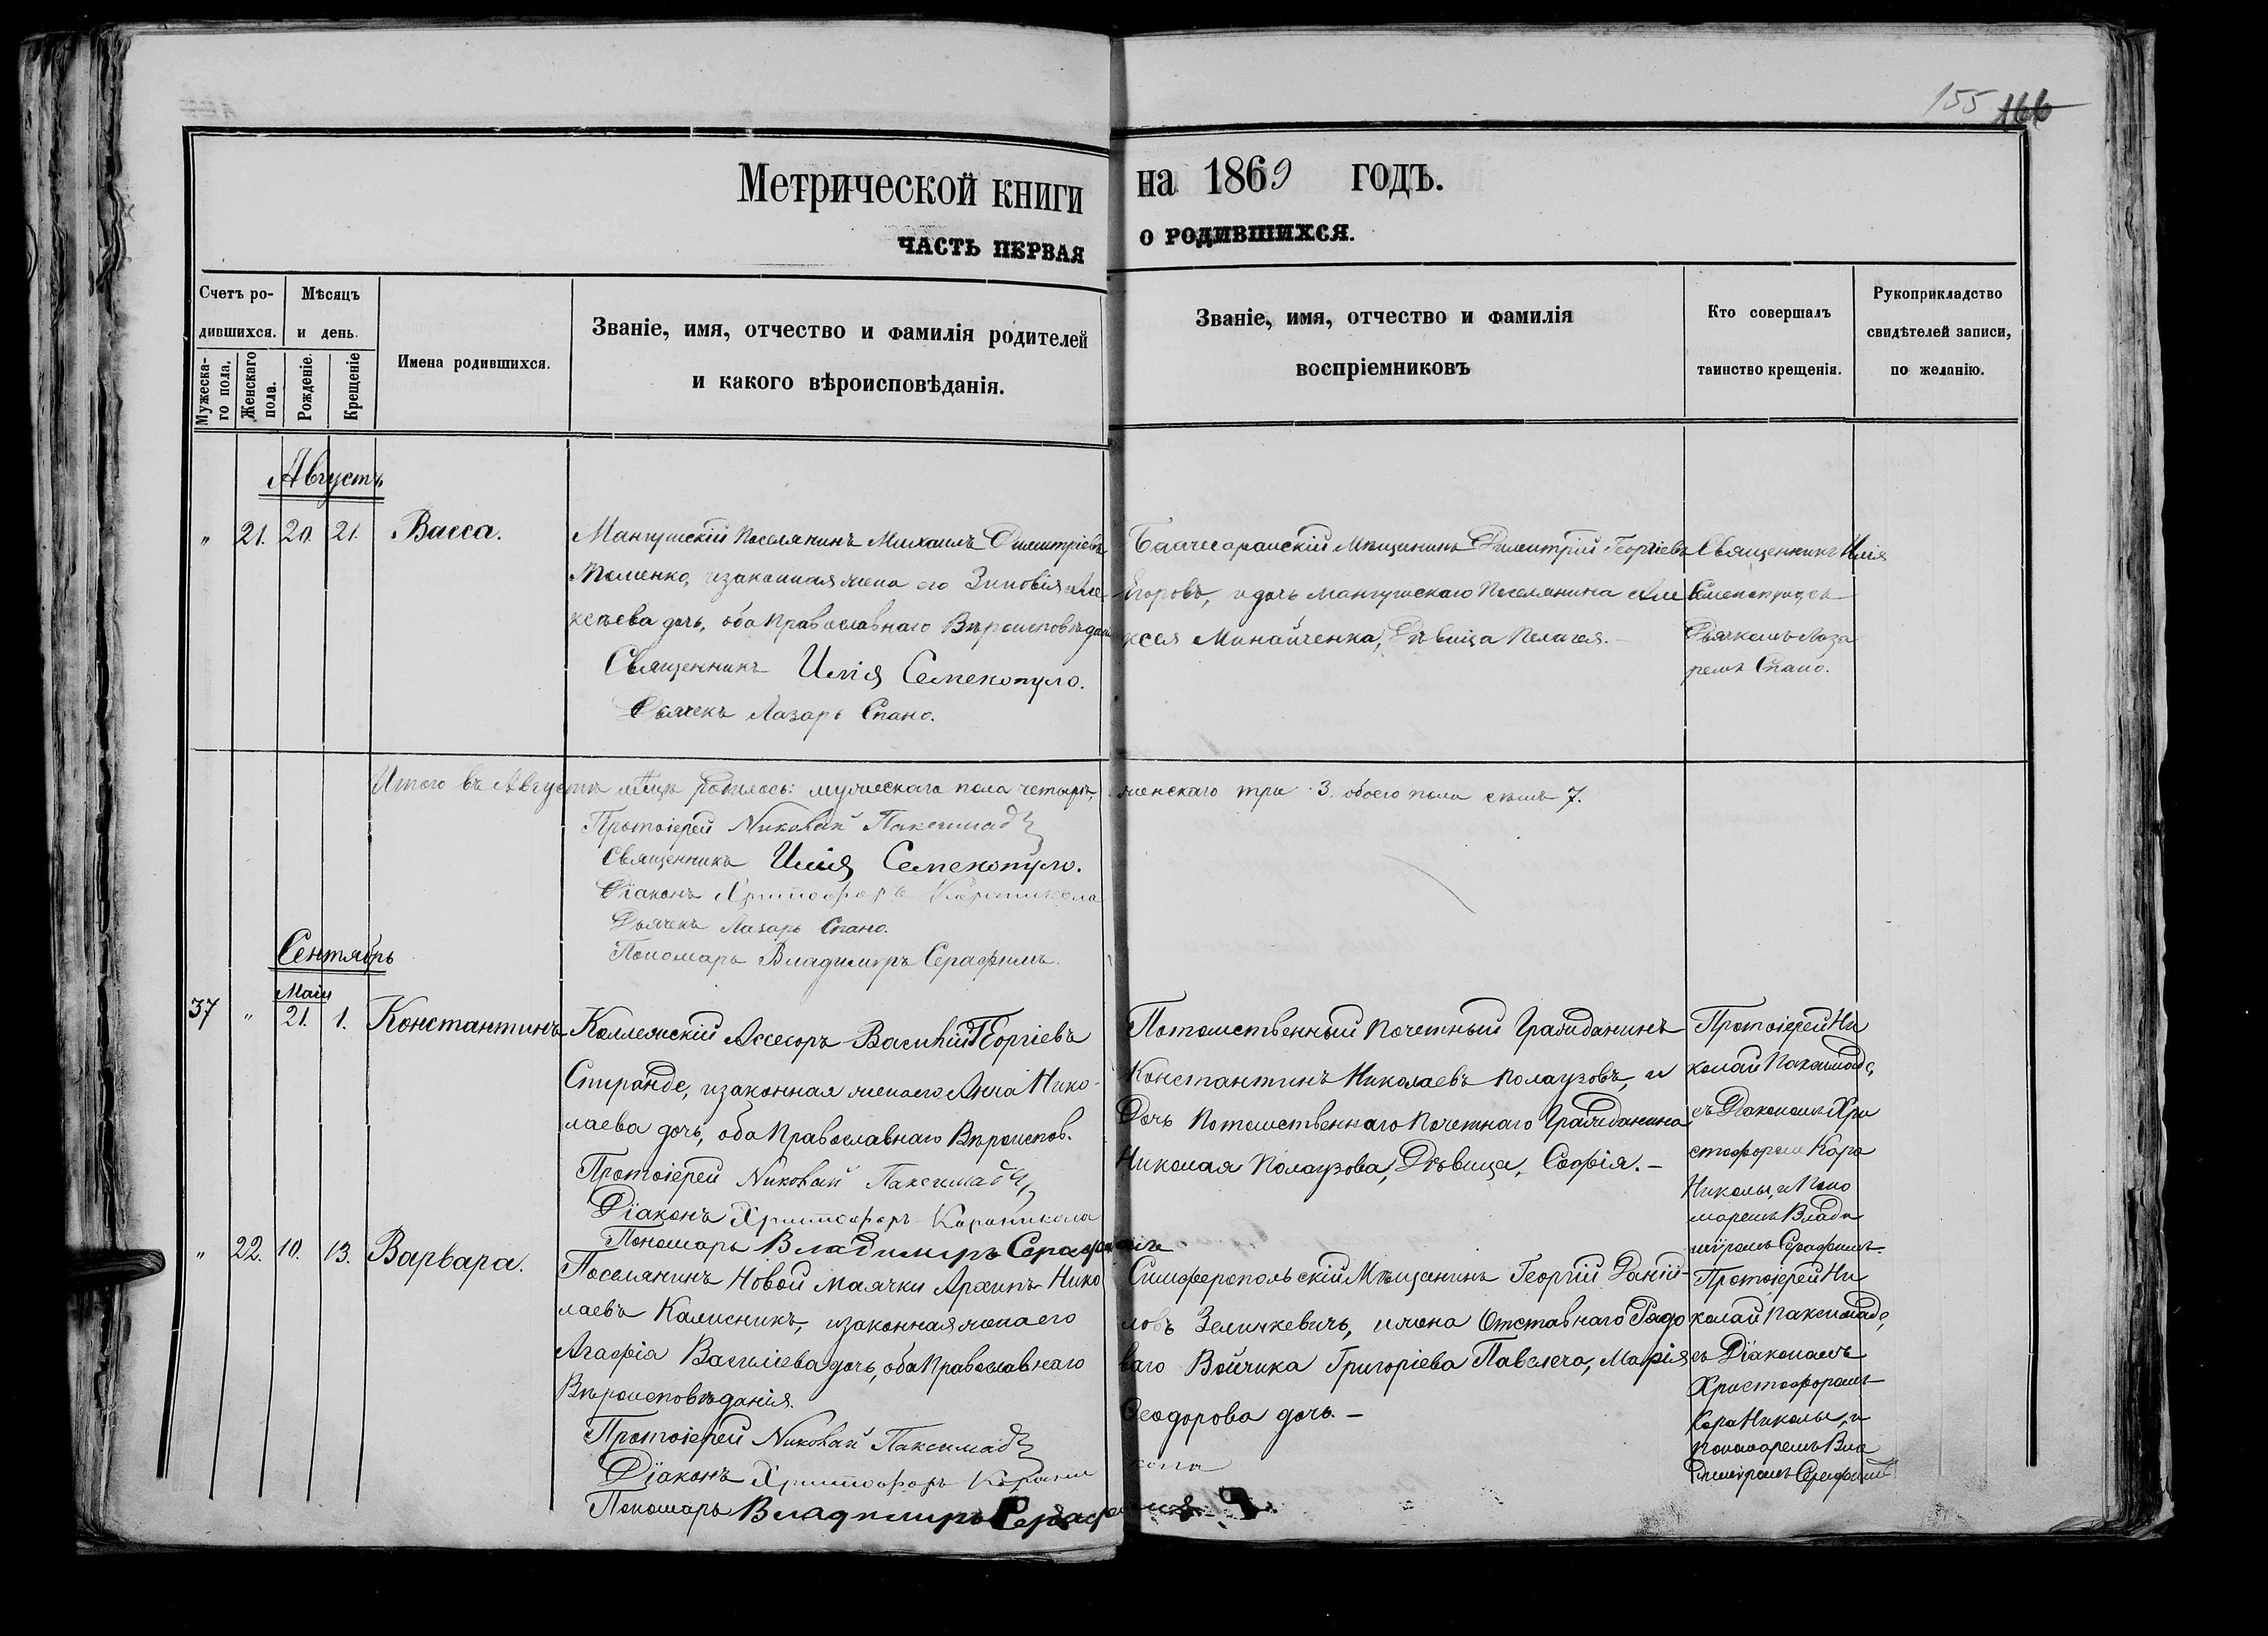 155 166
Метрической книги на 1869 годъ.
ЧАСТЬ ПЕРВАЯ О РОДИВШИХСЯ.
Счетъ ро-
дившихся.
Мужеска-
го пола.
Женскаго
пола.
Мѣсяцъ
и день.
Рожденіе.
Крещеніе
Имена родившихся.
Званіе, имя, отчество и фамилія родителей
и какого вѣроисповѣданія.
Званіе, имя, отчество и фамилія
воспріемниковъ
Кто совершалъ
таинство крещенія.
Рукоприкладство
свидѣтелей записи,
по желанію.
Августъ
" 21. 20. 21. Васса.
Мангушскій Поселянинъ Михаилъ Димитріевъ
изаконная жена его Зиновія Але-
ксѣева дочь, оба Православнаго Вѣроисповѣдан
Священникъ Илія Семекопуло.
Дьячекъ Лазарь Спано.
Мѣщанинъ Димитрій Георгіевъ
Егоровъ, и дочь Мангушскаго Поселянина Але
ксея Минайченка, Дѣвица Пелагея.
Священникъ Илія
Семекопуло съ
Дьячкомъ Лаза
ремъ Спано.
Итого въ Августѣ мѣсяцѣ родилось: мужескаго пола четыре, женскаго три 3. обоего пола семь 7.
Протоіерей Николай Паксимаде
Священникъ Илія Семекопуло.
Діаконъ Христофоръ Караникола
Дьячекъ Лазарь Спано.
Пономарь Владимиръ Серафимъ.
Сентябрь
37 " Маія 21. 1. Константинъ
Коллежскій Ассесоръ Василій Георгіевъ
Спиранде, изаконная жена его Анна Нико-
лаева дочь, оба Православнаго Вѣроиспов.
Протоіерей Николай Паксимаде
Діаконъ Христофоръ Караникола
Пономарь Владимиръ Серафимъ
Потомственный Почетный Гражданинъ
Константинъ Николаевъ Полаузовъ, и
Дочь Потомственнаго Почетнаго Гражданина
Николая Полаузова, Дѣвица, Софія. –
Протоіерей Ни
колай Паксимаде,
съ Діакономъ Хри
стофоромъ Кара
Николы, и Поно
маремъ Влади
міромъ Серафимъ.
" 22. 10. 13. Варвара.
Поселянинъ Новой Маячки Архипъ Нико
лаевъ Калисникъ, изаконная жена его
Агафія Васильева дочь, оба Православнаго
Вѣроисповѣданія.
Протоіерей Николай Паксимаде
Діаконъ Христофоръ Карани кола
Пономарь Владимиръ Серафимъ
Симферопольскій Мѣщанинъ Георгій Даніи-
ловъ Зелинкевичъ, и жена Отставнаго Рядо
ваго Войчика Григоріева Павелеча, Марія
Ѳеодорова дочь. –
Протоіерей Ни
колай Паксимаде,
съ Діакономъ
Христофоромъ
Кара Николы, и
Пономаремъ Вла
диміромъ Серафимъ